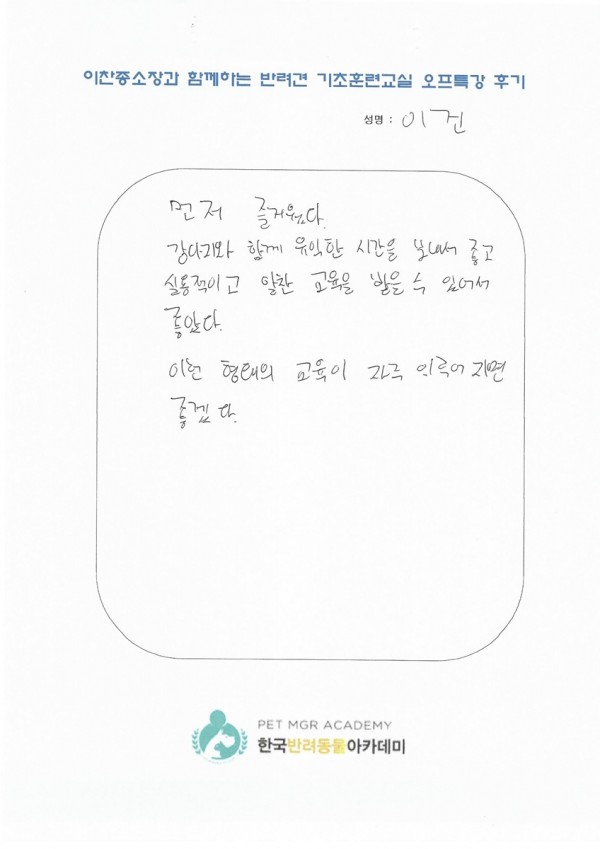 이찬종소장과 함께하는 반려견 기초훈련교실 오프특강 후기
성명 : 이건
먼저 즐거웠다.
강아지와 함께 유익한 시간을 보내서 좋고
실용적이고 알찬 교육을 받을 수 있어서
좋았다.
이런 형태의 교육이 자주 이루어지면
좋겠다.
PET MGR ACADEMY
한국반려동물아카데미